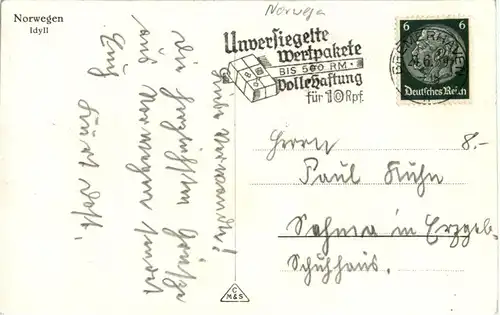 Norwegen
Idyll
Norwega
Unversiegelte
Wertpakete
BIS 500 RM.
Volle Haftung
für 10 Rpf.
6
Deutsches Reich
Liebe Verwandte!
die herzlichsten Grüße
aus Norwegen sendet
Euch
8.-
Herrn
Paul Kuhn
Sehma in Erzgeb.
Schuhhaus.
C
M&S